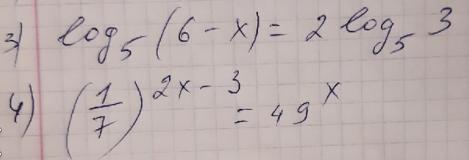 3) log₅(6-x) = 2 log₅ 3
4) (1/7)^(2x-3) = 49^x